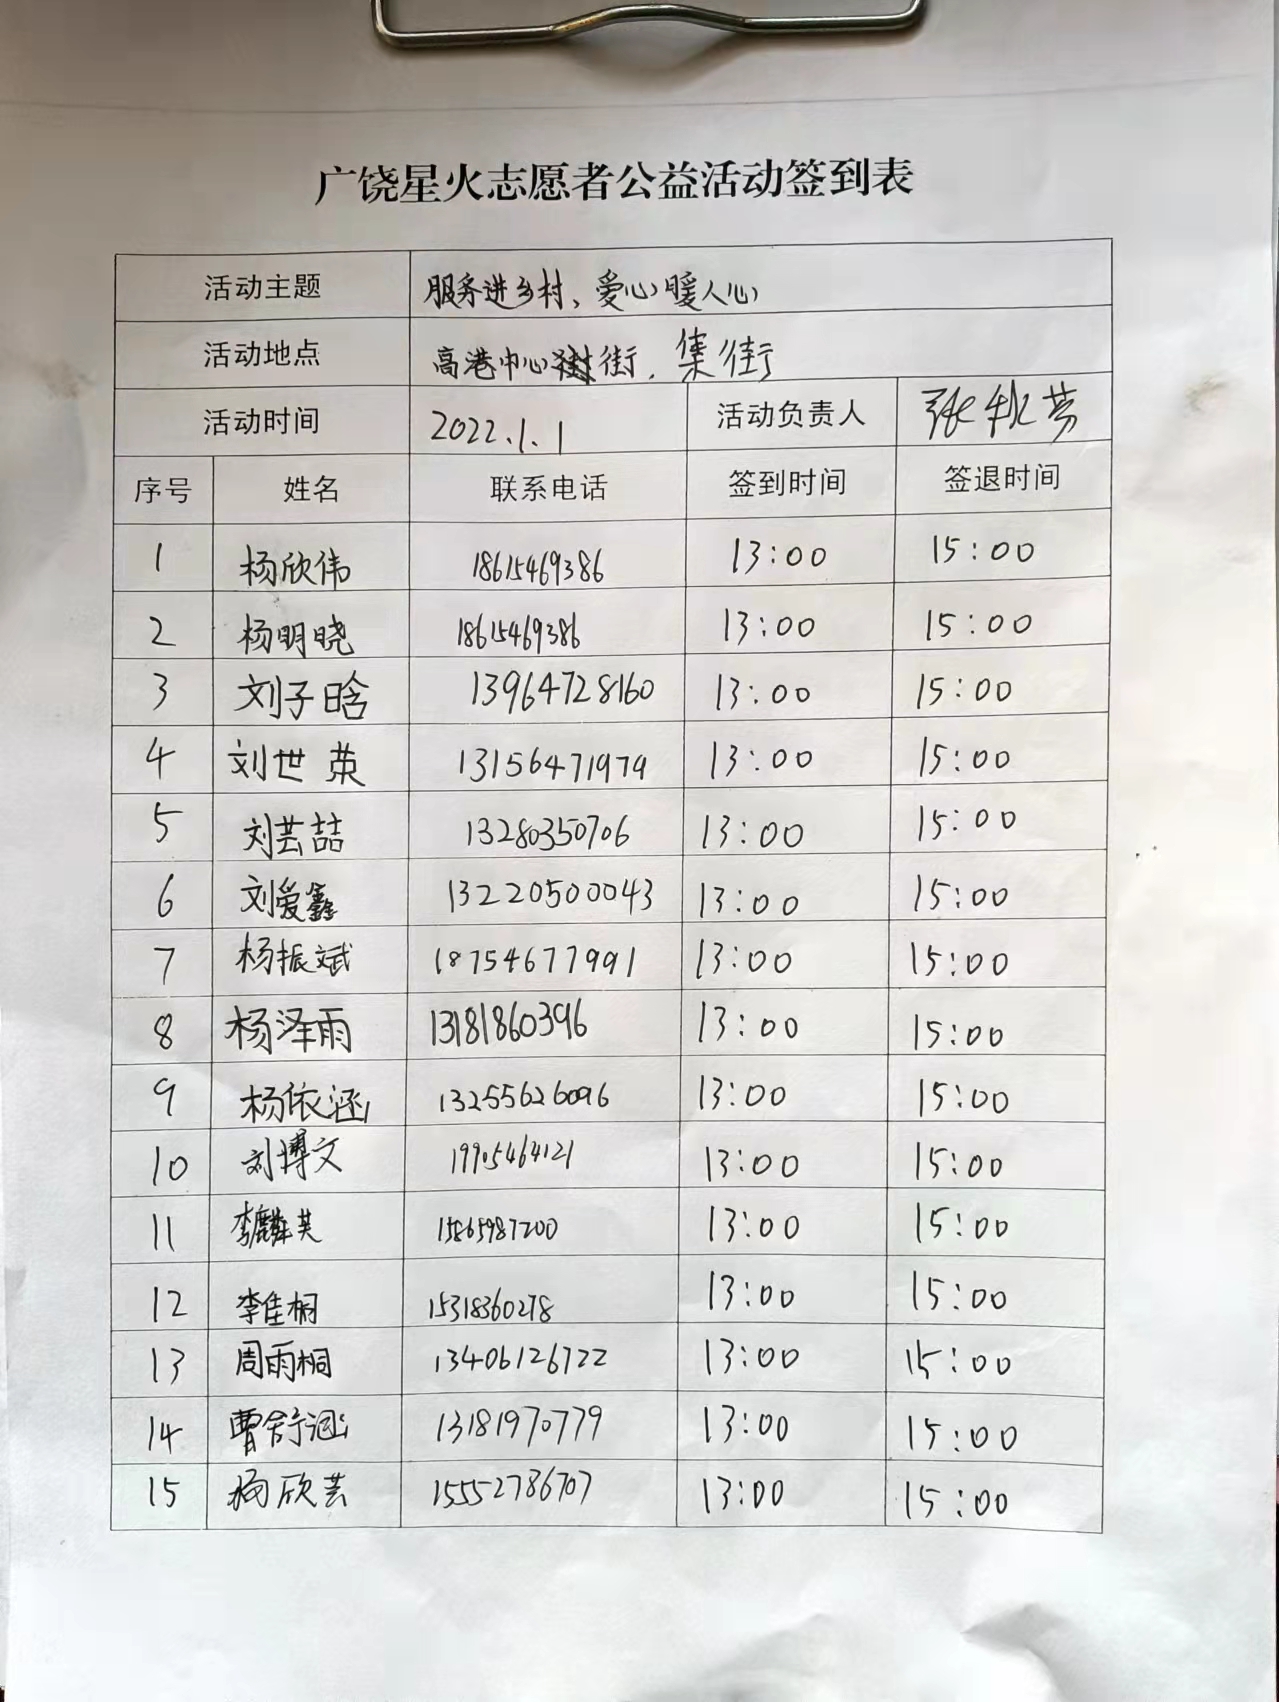 广饶星火志愿者公益活动签到表
活动主题 服务进乡村、爱心暖人心
活动地点 高港中心街，集街
活动时间 2022.1.1 活动负责人 张秋芳
序号 姓名 联系电话 签到时间 签退时间
1 杨欣伟 18615469386 13:00 15:00
2 杨明晓 18615469386 13:00 15:00
3 刘子晗 13964728160 13:00 15:00
4 刘世荣 13156471979 13:00 15:00
5 刘芸喆 13280350706 13:00 15:00
6 刘爱鑫 13220500043 13:00 15:00
7 杨振斌 18754677991 13:00 15:00
8 杨泽雨 13181860396 13:00 15:00
9 杨依涵 13255626096 13:00 15:00
10 刘博文 19905464121 13:00 15:00
11 李麟芙 15865987200 13:00 15:00
12 李佳桐 15318360278 13:00 15:00
13 周雨桐 13406126722 13:00 15:00
14 曹舒涵 13181970779 13:00 15:00
15 杨欣芸 15552786707 13:00 15:00